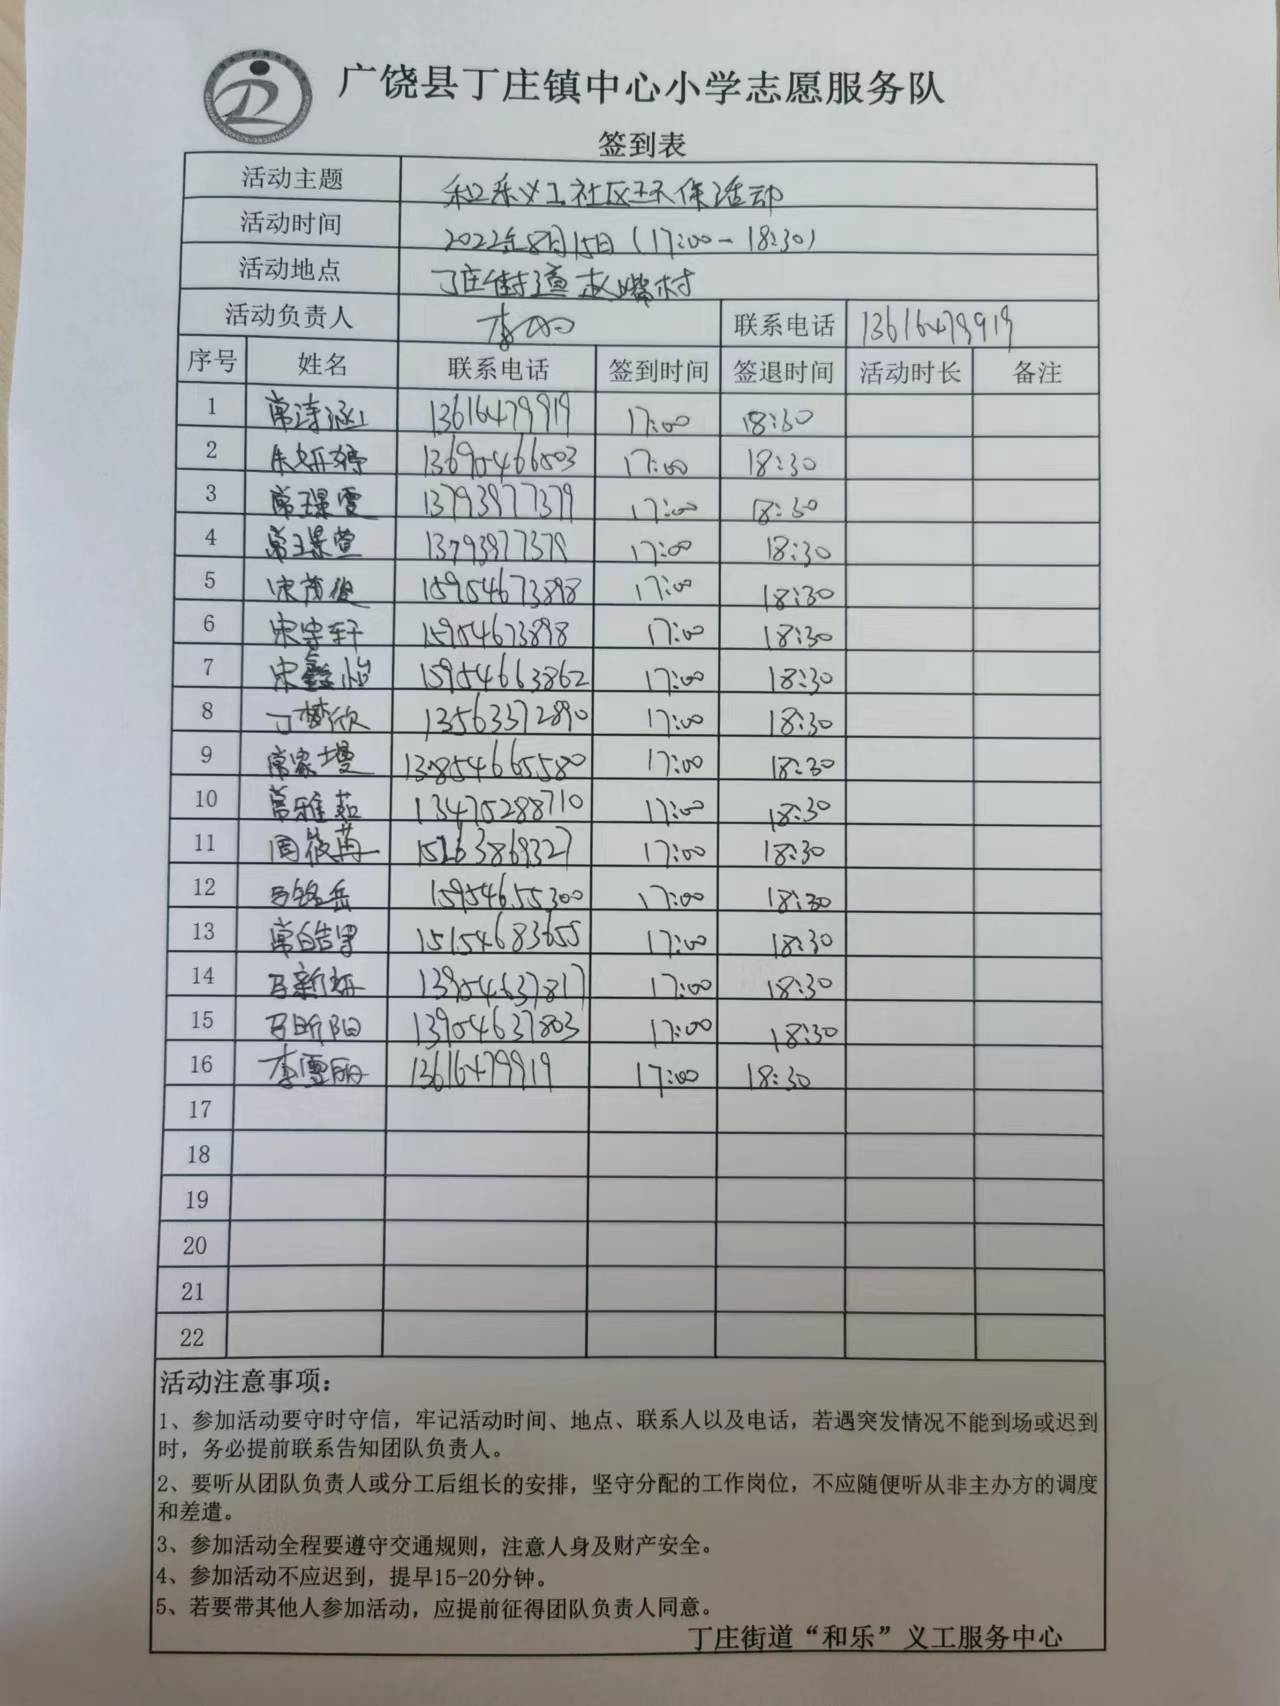 广饶县丁庄镇中心小学志愿服务队
签到表
活动主题 和乐义工社区环保活动
活动时间 2022年8月15日(17:00-18:30)
活动地点 丁庄街道赵嘴村
活动负责人 联系电话 13616479919
序号 姓名 联系电话 签到时间 签退时间 活动时长 备注
1 常涛涵 13616479919 17:00 18:30
2 朱妍婷 13695466503 17:00 18:30
3 常璟雯 13793977379 17:00 18:30
4 常璟萱 13793977379 17:00 18:30
5 宋茂俊 15954673898 17:00 18:30
6 宋宇轩 15954673898 17:00 18:30
7 宋鑫怡 15954663862 17:00 18:30
8 丁梦欣 13563372890 17:00 18:30
9 常家墁 138854665580 17:00 18:30
10 常雅茹 13475288710 17:00 18:30
11 周筱苒 15263869327 17:00 18:30
12 马铭岳 15954655300 17:00 18:30
13 常皓宇 15154683655 17:00 18:30
14 马新妍 13954637817 17:00 18:30
15 马昕阳 13954637803 17:00 18:30
16 李雪丽 13616479919 17:00 18:30
17
18
19
20
21
22
活动注意事项:
1、参加活动要守时守信，牢记活动时间、地点、联系人以及电话，若遇突发情况不能到场或迟到
时，务必提前联系告知团队负责人。
2、要听从团队负责人或分工后组长的安排，坚守分配的工作岗位，不应随便听从非主办方的调度
和差遣。
3、参加活动全程要遵守交通规则，注意人身及财产安全。
4、参加活动不应迟到，提早15-20分钟。
5、若要带其他人参加活动，应提前征得团队负责人同意。
丁庄街道“和乐”义工服务中心